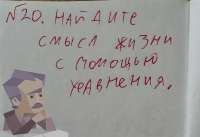 №20. НАЙДИТЕ
СМЫСЛ ЖИЗНИ
С ПОМОЩЬЮ
УРАВНЕНИЯ.